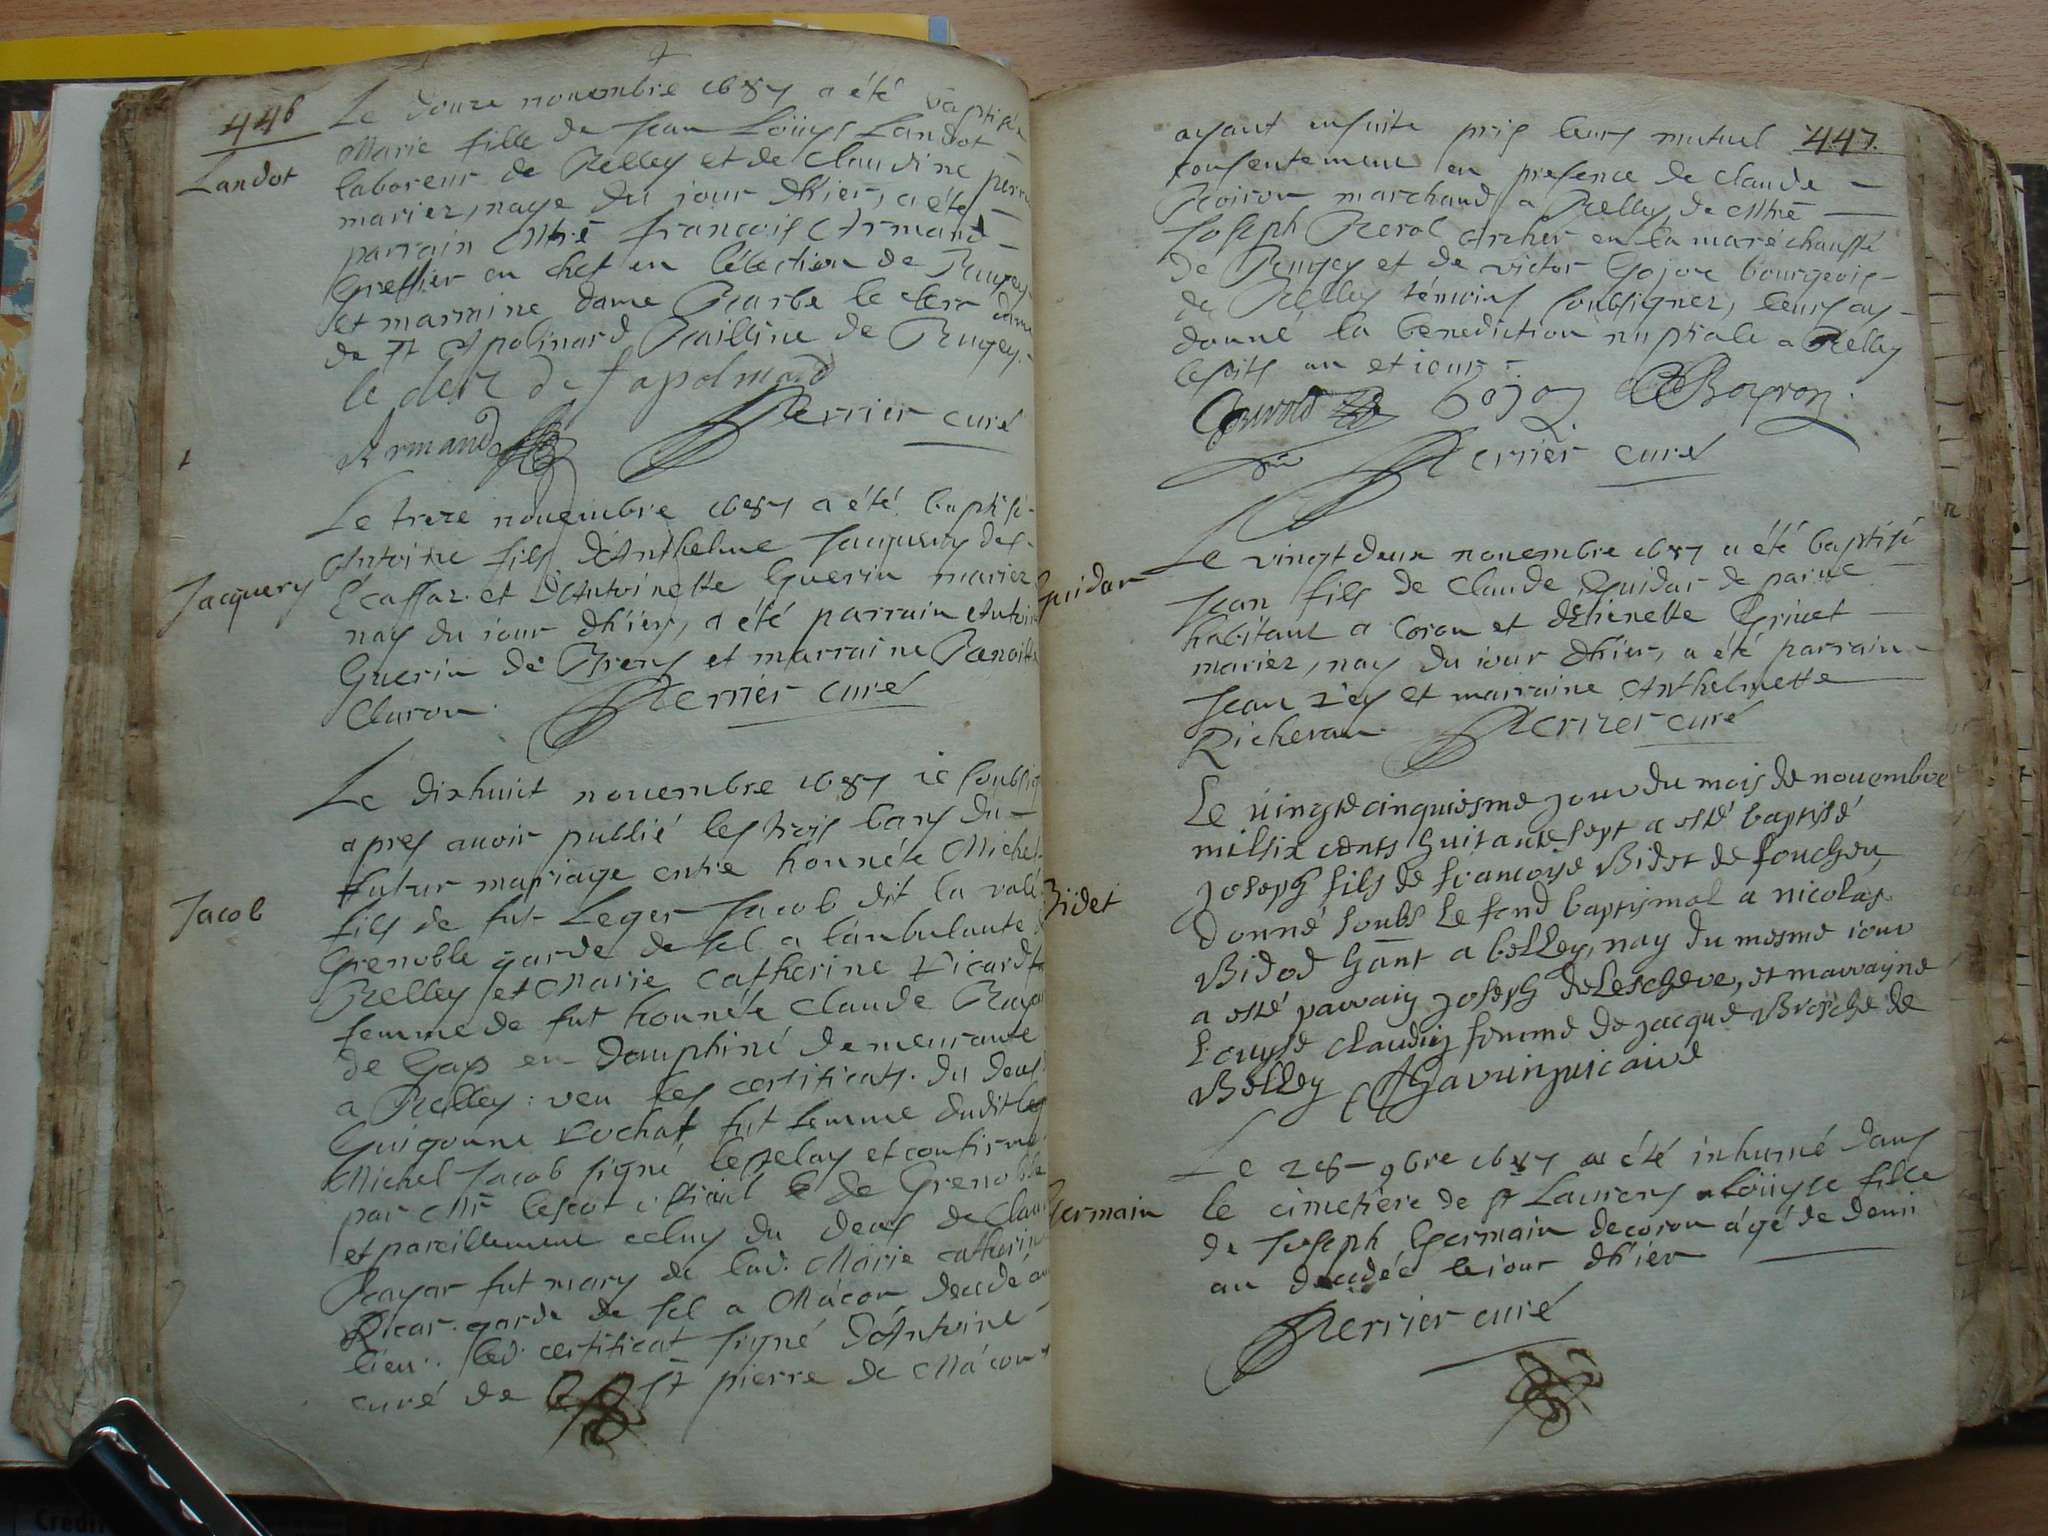 446
Le douze novembre 1687 a été baptisée
Landot
Marie fille de Jean Loüys Landot
laboreur de Belley et de Claudine
mariez, naye du jour d'hier, a été
parrain Mtre françois Armand
Greffier en chef en l'élection de Bugey
et marraine dame Barbe le clerc dame
de St Apolinard Bailline de Bugey.
le clerc de st apolinard
Armand
Perrier curé
Le treze novembre 1687 a été baptisé
Antoine fils d'Anthelme Jacquery des
Jacquery
Écassaz et d'Antoinette Guerin mariez
nay du jour d'hier, a été parrain Antoine
Guerin de Brens et marraine Benoitte
Claron.
Perrier curé
Le dixhuict novembre 1687 ie soubsig
apres avoir publié les trois bans du
futur mariage entre honnéte Michel
Jacob
fils de fut Leger Jacob dit la valé
Grenoble garde de sel a l'anbulante
Belley et Marie Catherine Ricard
femme de fut honnéte Claude Bayar
de Gap en Dauphiné demeurante
a Belley: veu les certificats du deus
Guigonne Rochat fut femme dudit
Michel Jacob signé et confirmé
par Mr lescot official de Grenoble
et pareillement celuy du deus de Claude
Bayar fut mary de lad. Marie Catherine
Ricar garde de sel a Mácon decedé au
lieu. led. certificat signé d'Antoine
curé de St pierre de Mácon
447.
ayant ensuite pris leurs mutuel
consentement en presence de Claude
Boiron marchand a Belley, de Mtre
Joseph Berol Archer en la maréchaussé
de Bugey et de victor Gojoz bourgeois
de Belley témoins soubsignez, leurs ay
donné la benediction nuptiale a Belley
lesdits an et jour.
Gojoz Boyron
Perrier curé
Le vingt deux novembre 1687 a été baptisé
Guidar
Jean fils de Claude Guidar de
habitant a Coron et d'Etienette Grivet
mariez, nay du jour d'hier, a été parrain
Jean Rey et marraine Anthelmette
Richeran.
Perrier curé
Le vingte cinquiesme jour du mois de novembre
mil six cents huitante sept a esté baptisé
Joseph fils de françoise Bidet de foucheu
Bidet
donné soubs le fond baptismal a nicolas
Bidod hant a belley, nay du mesme iour
a esté parrain joseph delescheve, et marrayne
Louyse Claudin femme de jacque Broiche de
Belley vicaire
Le 28 9bre 1687 a été inhumé dans
Germain
le cimetiére de St Laurens Loüyse fille
de Joseph Germain de coron ágé de demi
an decedée le jour d'hier
Perrier curé